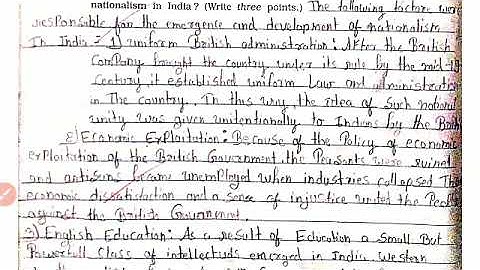 nationalism in India? (Write three points.) The following factors were
responsible for the emergence and development of nationalism
In India - 1) uniform British administration: After the British
Company brought the country under its rule by the mid-19
Century, it established uniform Law and administration
in The country. In this way, the idea of Such national
unity was given unitentionally to Indians by the British
2) Economic Exploitation: Because of the Policy of economic
exploitation of the British Government, the Peasants were ruined
and artisans became unemployed when industries collapsed. The
economic dissatisfaction and a sense of injustice united the People
against the British Government.
3) English Education: As a result of Education a Small But
Powerfull class of intellectuals emerged in India. western